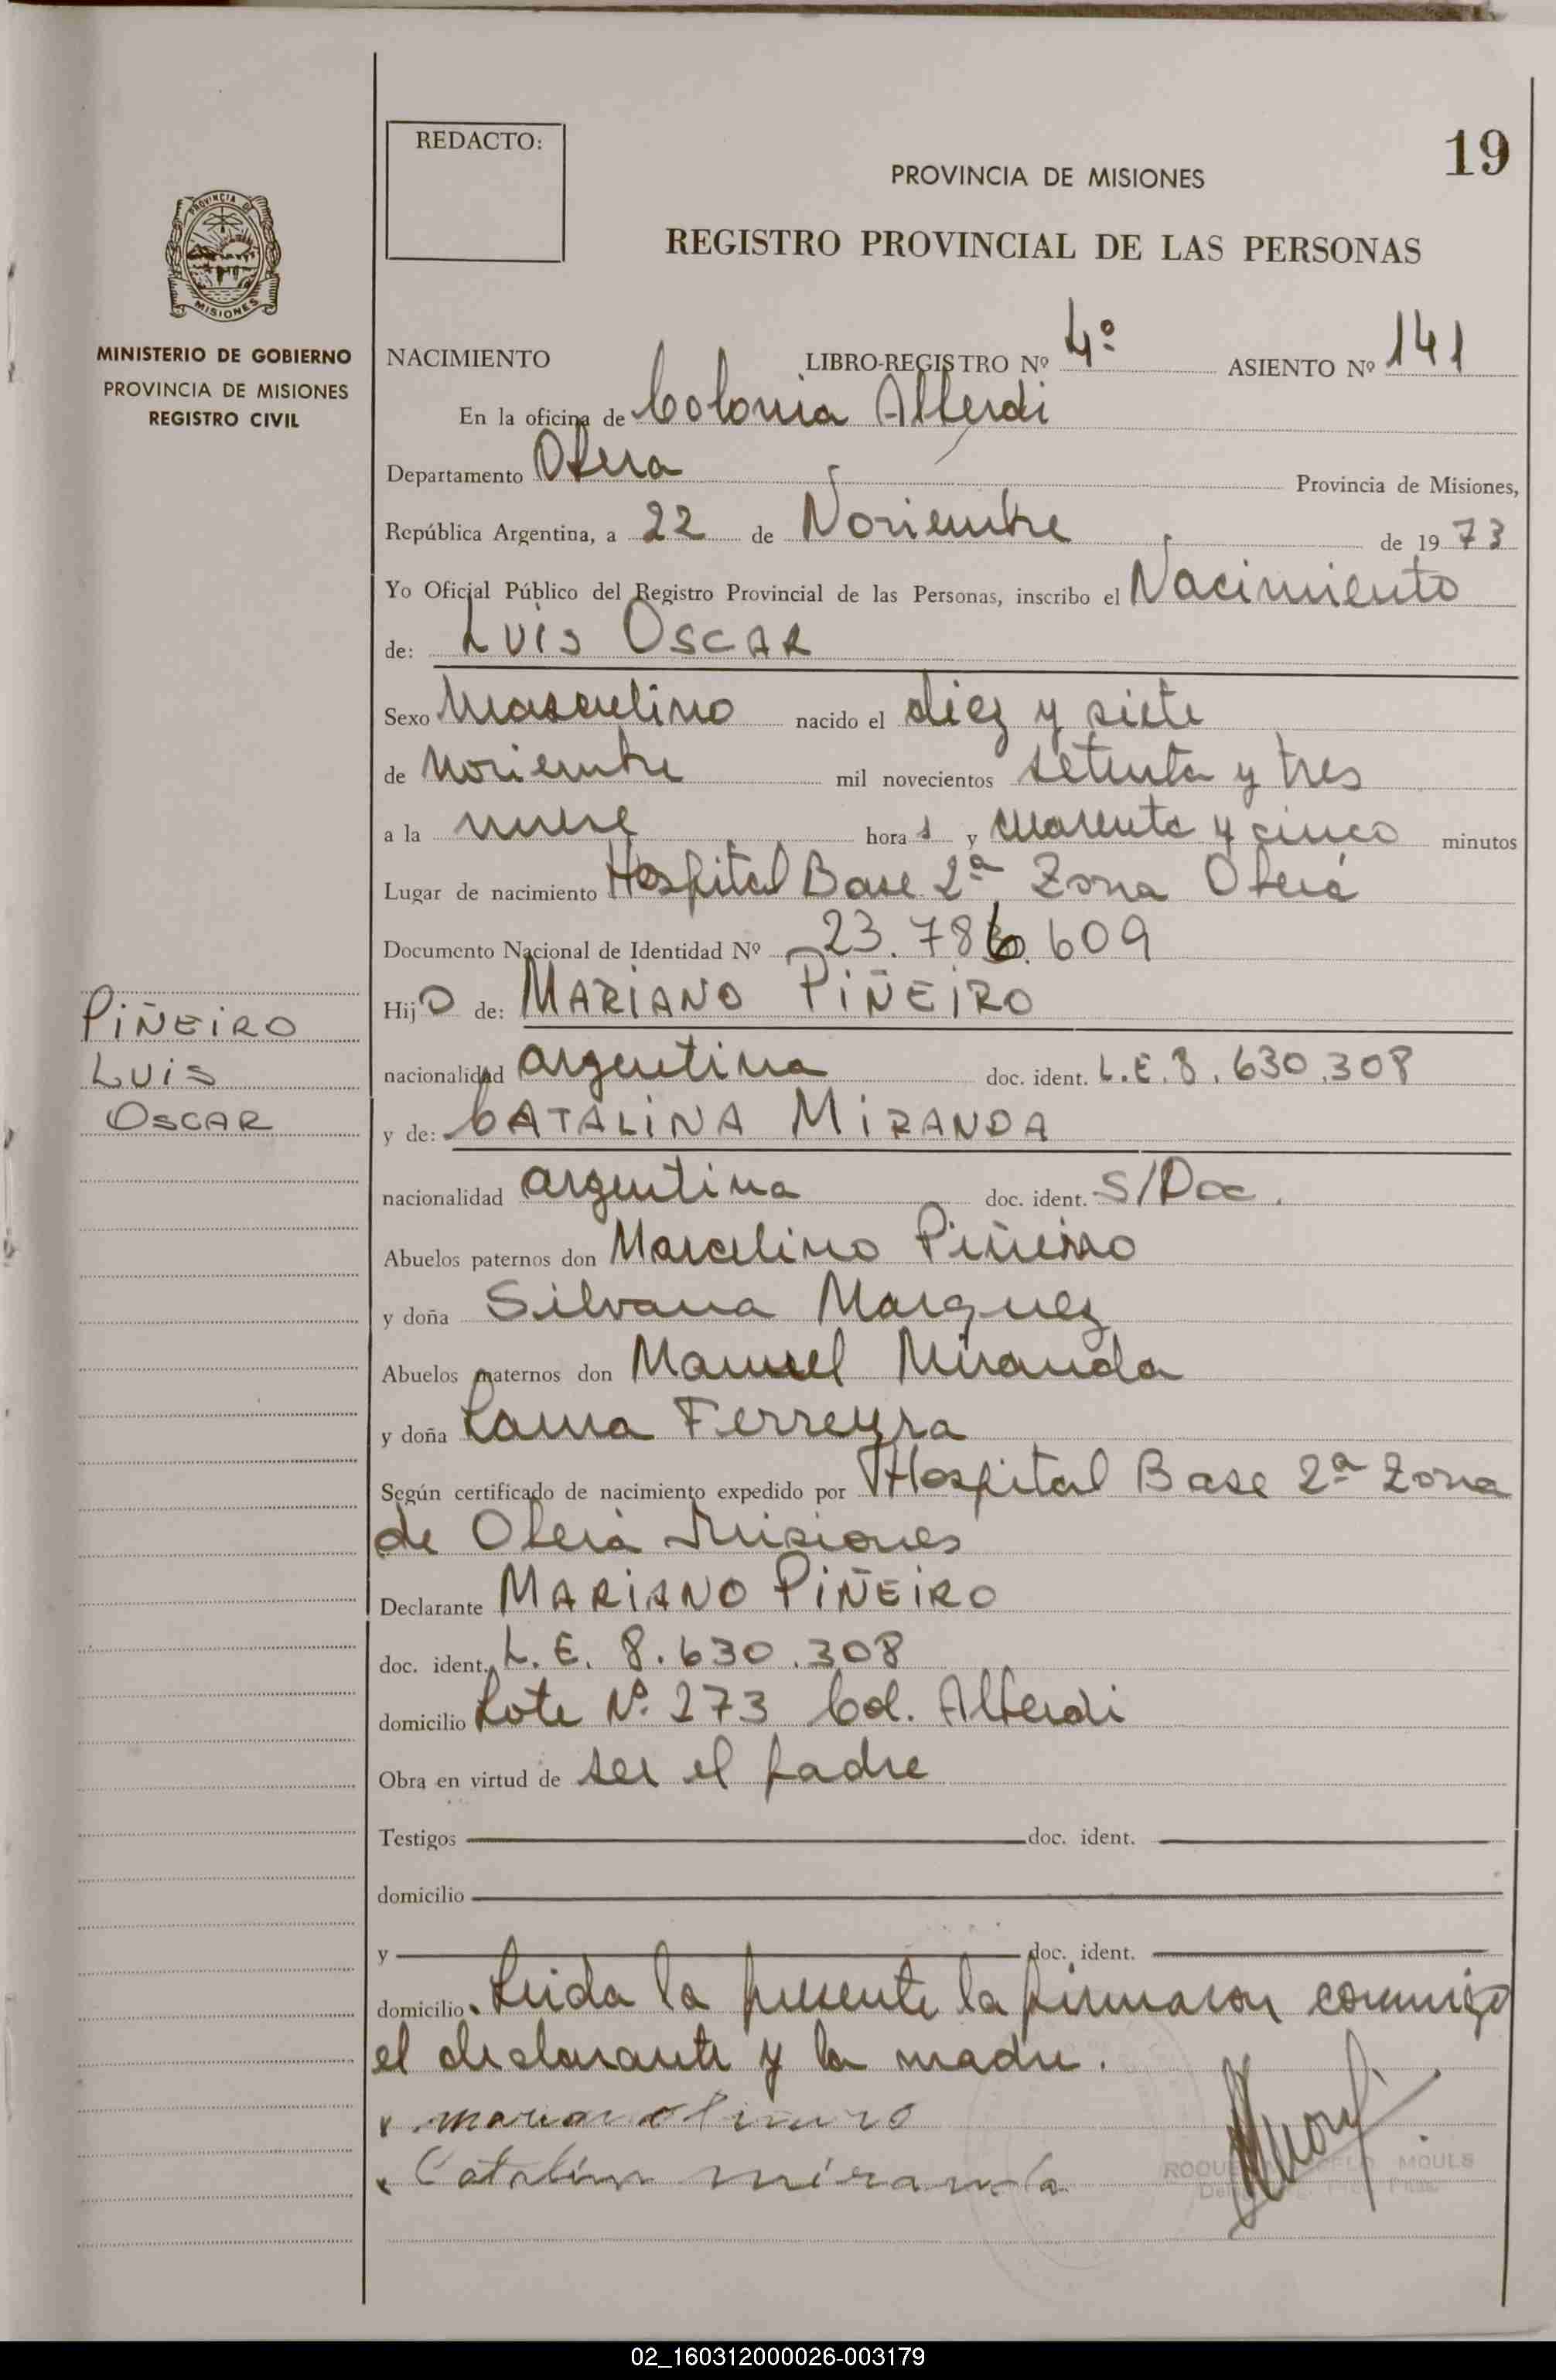 19
REDACTO:
PROVINCIA DE MISIONES
REGISTRO PROVINCIAL DE LAS PERSONAS
PROVINCIA DE
MISIONES
MINISTERIO DE GOBIERNO
PROVINCIA DE MISIONES
REGISTRO CIVIL
NACIMIENTO LIBRO-REGISTRO Nº 4º ASIENTO Nº 141
En la oficina de Colonia Alberdi
Departamento Obera Provincia de Misiones,
República Argentina, a 22 de Noviembre de 1973
Yo Oficial Público del Registro Provincial de las Personas, inscribo el Nacimiento
de: LUIS OSCAR
Sexo Masculino nacido el diez y siete
de Noviembre mil novecientos setenta y tres
a la nueve horas y cuarenta y cinco minutos
Lugar de nacimiento Hospital Base 2ª Zona Oberá
Documento Nacional de Identidad Nº 23.786.609
Hijo de: MARIANO PIÑEIRO
nacionalidad argentina doc. ident. L.E. 8.630.308
y de: CATALINA MIRANDA
nacionalidad argentina doc. ident. S/Doc.
Abuelos paternos don Marcelino Piñeiro
y doña Silvana Marquez
Abuelos maternos don Manuel Miranda
y doña Laura Ferreyra
Según certificado de nacimiento expedido por Hospital Base 2ª Zona
de Oberá Misiones
Declarante MARIANO PIÑEIRO
doc. ident. L.E. 8.630.308
domicilio Lote Nº 273 Col. Alberdi
Obra en virtud de ser el padre
Testigos doc. ident.
domicilio
y doc. ident.
domicilio. Leida la presente la firmaron conmigo
el declarante y la madre.
Catalina miranda
ROQUE MOULS
PIÑEIRO
LUIS
OSCAR
02_160312000026-003179